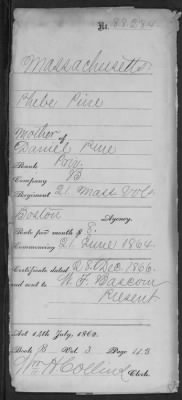 No. 88284
Massachusetts.
Phebe Pine
Mother of
Daniel Pine
Rank Priv.
Company B
Regiment 21. Mass Vols
Boston Agency.
Rate per month $ 8.
Commencing 21. June 1864.
Certificate dated 28. Dec. 1866.
and sent to W. F. Bascom
Present
Act 14th July, 1862.
Book B Vol. 3 Page 113
Wm H Collins Clerk.